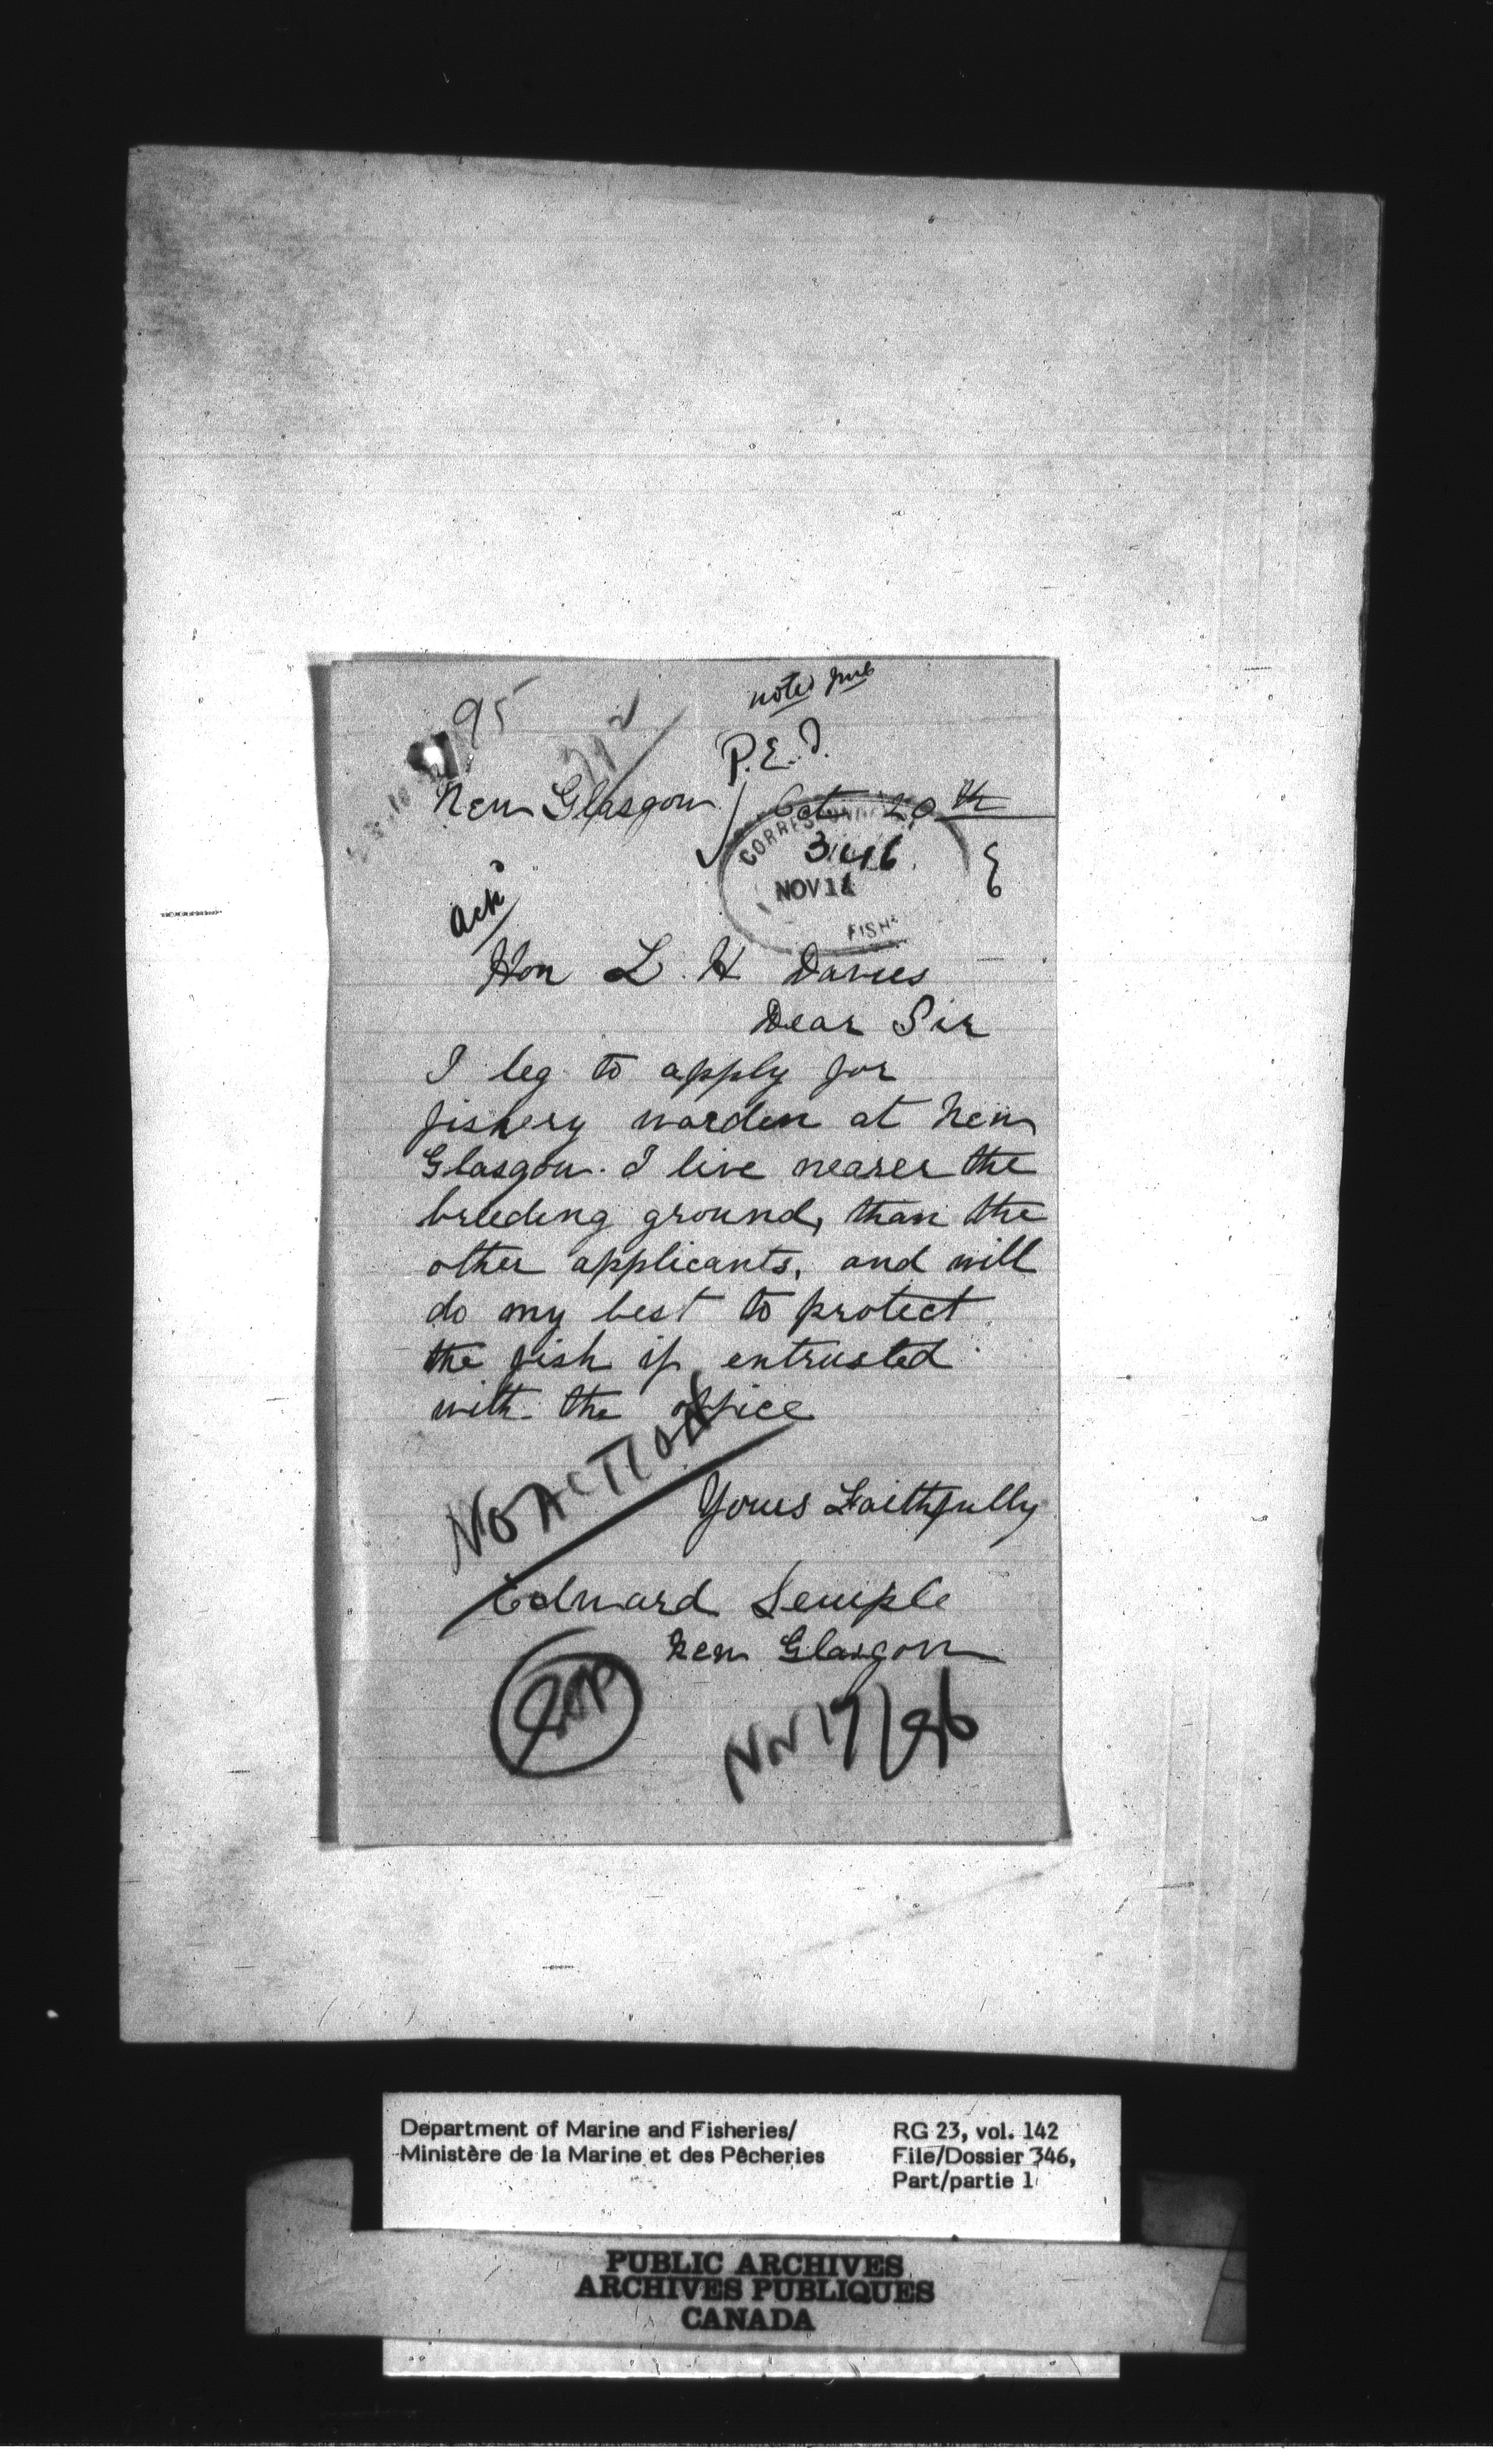 noted
95
P.E.I.
New Glasgow Oct 20th
CORRESPONDENCE
346
NOV 11
FISH
Ack
Hon L. H Davies
Dear Sir
I beg to apply for
fishery warden at New
Glasgow. I live nearer the
breeding ground, than the
other applicants, and will
do my best to protect
the fish if entrusted
with the office
NO ACTION
Yours Faithfully
Edward Semple
New Glasgow
Nov 17/96
Department of Marine and Fisheries/
Ministère de la Marine et des Pêcheries
RG 23, vol. 142
File/Dossier 346,
Part/partie 1
PUBLIC ARCHIVES
ARCHIVES PUBLIQUES
CANADA